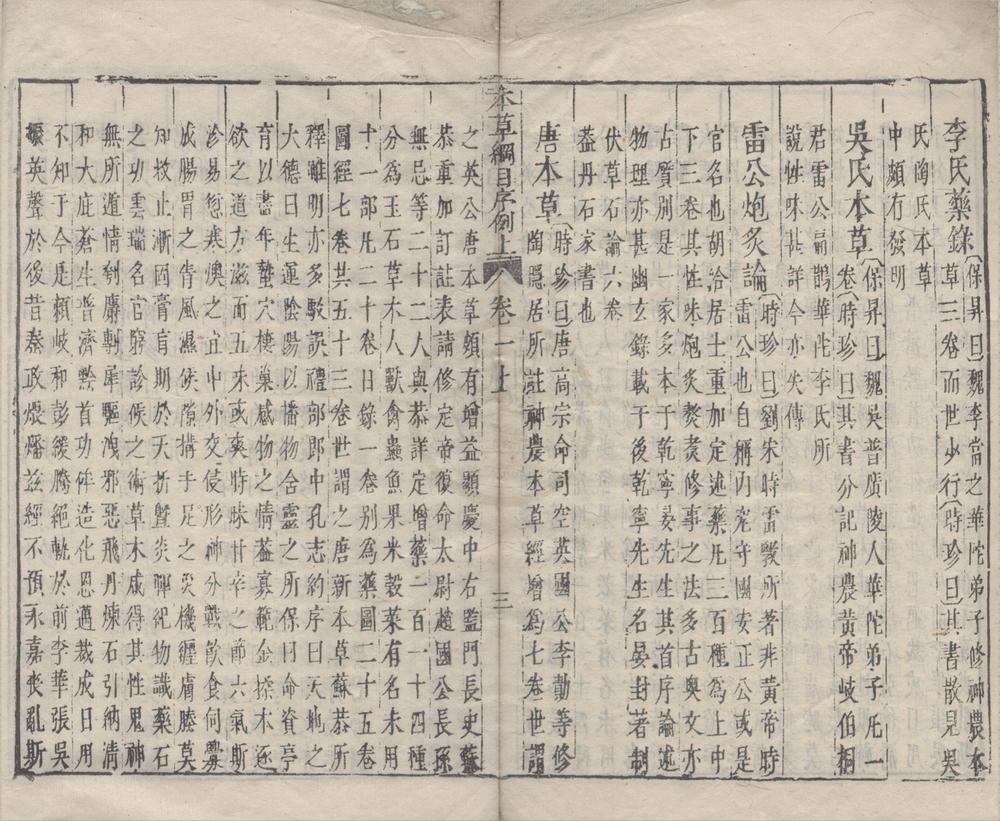 李氏藥錄保昇曰魏李當之華陀弟子修神農本
草三卷而世少行時珍曰其書散見吳
氏陶氏本草
中頗有發明
吳氏本草保昇曰魏吳普廣陵人華陀弟子凡一
卷時珍曰其書分記神農黃帝岐伯桐
君雷公扁鵲華陀李氏所
說性味甚詳今亦失傳
雷公炮炙論時珍曰劉宋時雷斆所著非黃帝時
雷公也自稱內究守國安正公或是
官名也胡洽居士重加定述藥凡三百種為上中
下三卷其性味炮炙熬煮修事之法多古奧文亦
古質別是一家多本于乾寧晏先生其首序論述
物理亦甚幽玄錄載于後乾寧先生名晏封著制
伏草石論六卷
蓋丹石家書也
唐本草時珍曰唐高宗命司空英國公李勣等修
陶隱居所註神農本草經增為七卷世謂
本草綱目序例上 卷一上 三
之英公唐本草頗有增益顯慶中右監門長史蘇
恭重加訂註表請修定帝復命太尉趙國公長孫
無忌等二十二人與恭詳定增藥一百一十四種
分為玉石草木人獸禽蟲魚果米穀菜有名未用
十一部凡二十卷目錄一卷別為藥圖二十五卷
圖經七卷共五十三卷世謂之唐新本草蘇恭所
釋雖明亦多駁誤禮部郎中孔志約序曰天地之
大德曰生運陰陽以播物含靈之所保曰命資亭
育以盡年蟄穴棲巢感物之情蓋寡範金揉木逐
欲之道方滋而五味或爽時昧甘辛之節六氣斯
沴易愆寒燠之宜中外交侵形神分戰飲食伺釁
成腸胃之眚風濕候隙搆手足之災機纏膚腠莫
知救止漸固膏肓期於夭折暨炎暉紀物識藥石
之功雲瑞名官窮診候之術草木咸得其性鬼神
無所遁情刳麝剸犀驅洩邪惡飛丹煉石引納清
和大庇蒼生普濟黔首功侔造化恩邁裁成日用
不知于今是賴岐和彭緩騰絕軌於前李華張吳
振英聲於後昔秦政煨燔茲經不預永嘉喪亂斯